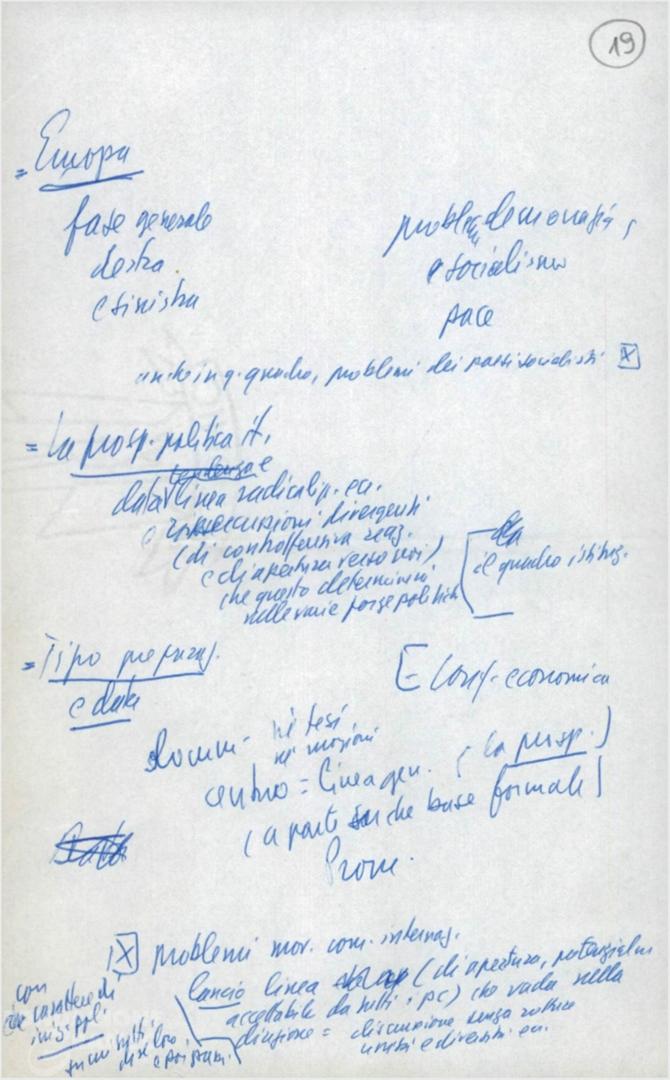 19
= Europa
fase generale
destra
e sinistra
problemi democrazia,
e socialismo
pace
anche in q. quadro, problemi dei paesi socialisti [X]
= La prosp. politica it.
tendenza e
data linea radicalizz. ecc.
e ripercussioni divergenti
(di controffensiva reaz.
e di apertura verso noi)
che questo determina
nelle varie forze politiche
il quadro istituz.
= Tipo preparaz.
e data
[= Conf. economica
Docum. - né tesi
né mozioni
centro = linea gen. (la prosp.)
(a parte su che base formale)
Prov.
[X] problemi mov. com. internaz.
lancio linea (di apertura, potenzialm.
accettabile da tutti i pc) che vada nella
direzione = discussione senza rotture
unità e diversità ecc.
con
che carattere di
iniz. pol.